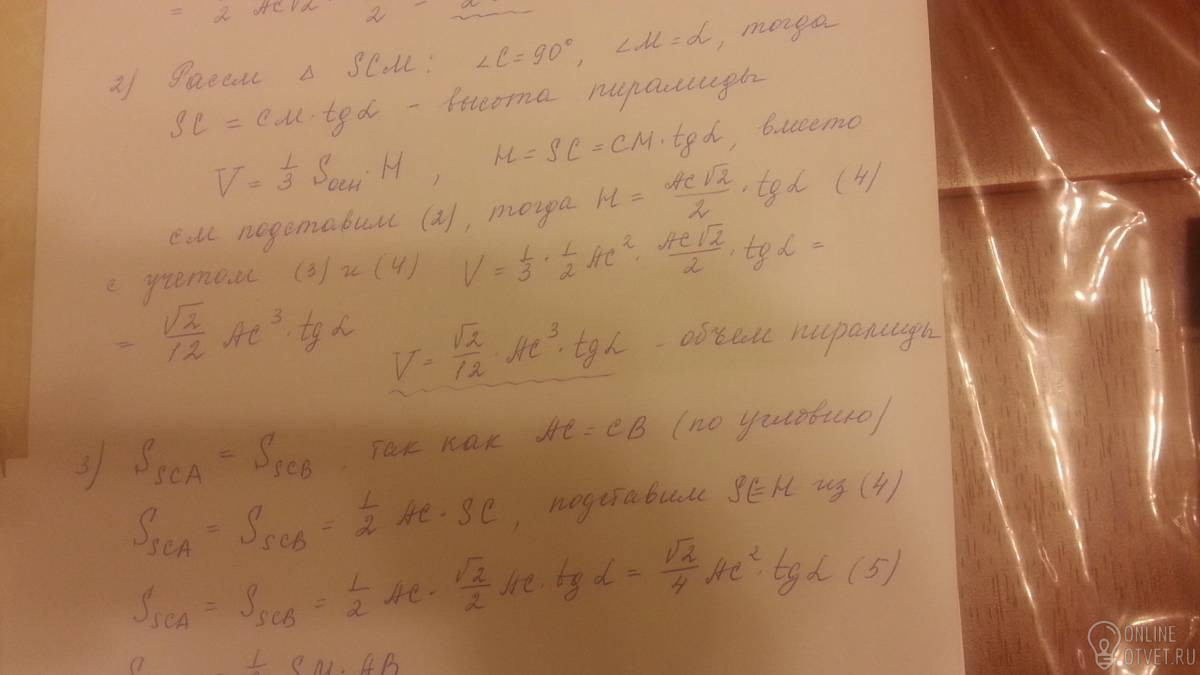 = 1/2 AC√2 · /2 =
2) Рассм △ SCM: ∠C=90°, ∠M=α, тогда
SC = CM·tgα - высота пирамиды
V = 1/3 Sосн H, H=SC=CM·tgα, вместо
см подставим (2), тогда H = AC√2/2 · tgα (4)
с учетом (3) и (4) V = 1/3 · 1/2 AC² · AC√2/2 · tgα =
= √2/12 AC³·tgα
V = √2/12 · AC³·tgα - объем пирамиды
3) S_SCA = S_SCB, так как AC=CB (по угловию)
S_SCA = S_SCB = 1/2 AC·SC, подставим SC=H из (4)
S_SCA = S_SCB = 1/2 AC· √2/2 AC·tgα = √2/4 AC²·tgα (5)
SM·AB
ONLINE
OTVET.RU